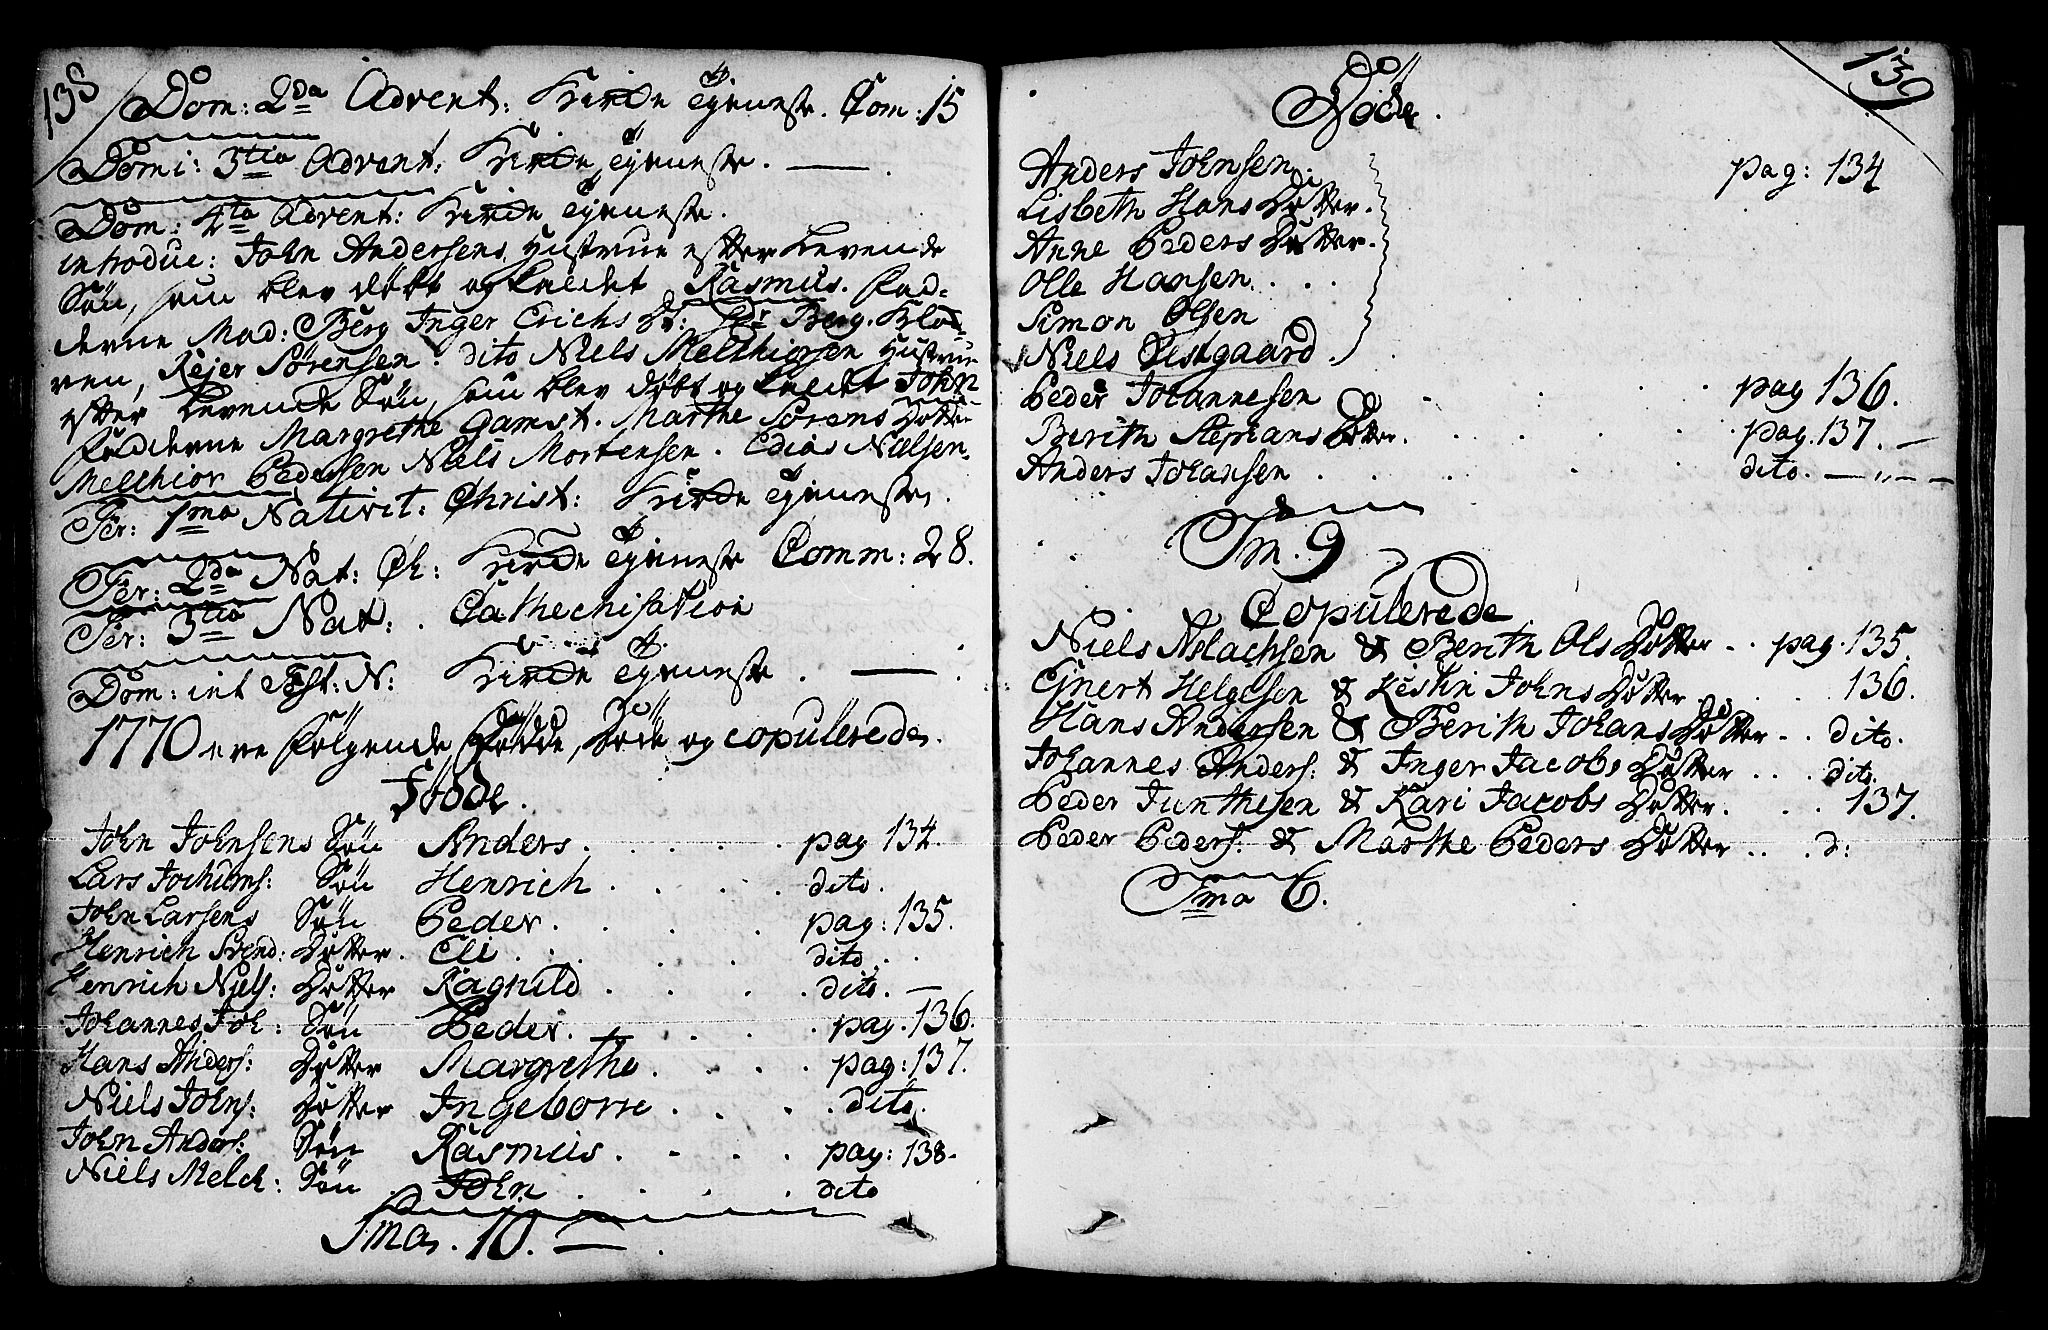 138
Dom: 2da Advent: Kirke Tjeneste. Com: 15
Domi: 3tia Advent: Kirke Tjeneste.
Dom: 4ta Advent: Kirke Tjeneste.
introduc: John Andersens Hustrue efter Levende
Søn, som blev døbt og kaldet Rasmus. Fad-
derne Mad: Berg Inger Erichs D: Hr Berg. Klok-
ren, Rejer Sørensen. dito Niels Melchiorsen Hustrue
efter Levende Søn, som blev døbt og kaldet John
Fadderne Margrethe Gamst. Marthe Sørens Dotter
Melchior Pedersen Niels Mortensen. Edias Nielsen.
Fer: 1ma Nativit: Christ: Kirke Tjeneste.
Fer: 2da Nat: Ch: Kirke Tjeneste Comm: 28.
Fer: 3tia Nat: Cathechisation
Dom: int Fest: N: Kirke Tjeneste.
1770 ere følgende Fødde, Døde og copulerede.
Fødde.
John Johnsens Søn Anders. pag 134.
Lars Jochums: Søn Henrich. dito.
John Larsens Søn Peder. pag: 135.
Henrich Svend: Dotter. Eli. dito.
Henrich Niels: Dotter Ragnild. dito.
Johannes Joh: Søn Peder. pag. 136.
Hans Anders: Dotter Margrethe. pag: 137.
Niels Johns: Dotter Ingeborre. dito.
John Anders: Søn Rasmus. pag: 138.
Niels Melch: Søn John. dito
Sma. 10.
139
Døde.
Anders Johnsen. pag: 134
Lisbeth Hans Dotter.
Anne Peders Dotter.
Olle Hansen.
Simon Olsen
Niels Qvisgaard.
Peder Johannesen pag 136.
Berith Stephans Dotter. pag. 137.
Anders Johansen. dito.
Sm. 9
Copulerede
Niels Aslachsen & Berith Ols Dotter.. pag. 135.
Ejnert Helgesen & Kestin Johns Dotter 136.
Hans Andersen & Berith Johans Dotter.. dito.
Johannes Anders: & Inger Jacobs Dotter... dito.
Peder Junthesen & Kari Jacobs Dotter. 137.
Peder Peders: & Marthe Peders Dotter... d:
Sma 6.